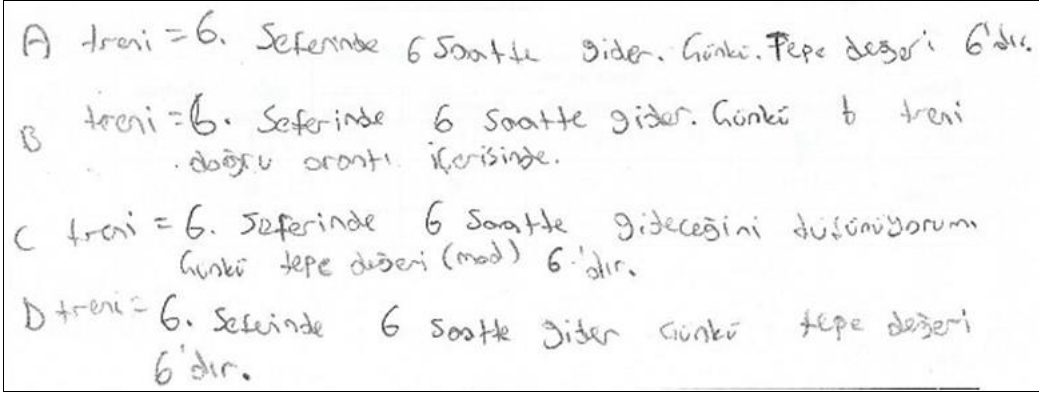 A treni = 6. Seferinde 6 Saatte gider. Çünkü. Tepe değeri 6'dır.
treni = 6. Seferinde 6 Saatte gider. Çünkü b treni
B doğru orantı içerisinde.
C treni = 6. Seferinde 6 Saatte gideceğini düşünüyorum.
Çünkü tepe değeri (mod) 6'dır.
D treni = 6. Seferinde 6 saatte gider Çünkü tepe değeri
6'dır.